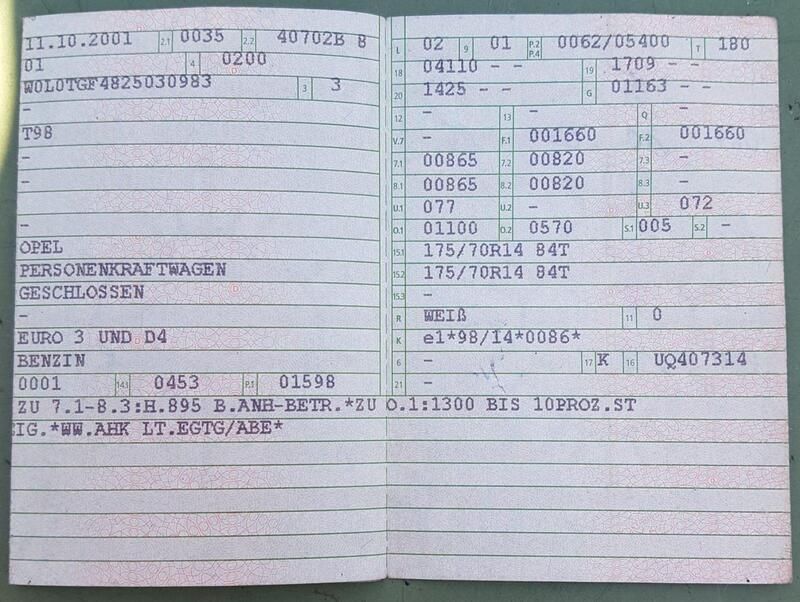 11.10.2001 2.1 0035 2.2 40702B 8
01 4 0200
W0L0TGF4825030983 3 3
-
T98
-
-
-
-
OPEL
PERSONENKRAFTWAGEN
GESCHLOSSEN
-
EURO 3 UND D4
BENZIN
0001 14.1 0453 P.1 01598
L 02 9 01 P.2 P.4 0062/05400 T 180
18 04110 - - 19 1709 - -
20 1425 - - G 01163 - -
12 - 13 - Q -
V.7 - F.1 001660 F.2 001660
7.1 00865 7.2 00820 7.3 -
8.1 00865 8.2 00820 8.3 -
U.1 077 U.2 - U.3 072
O.1 01100 O.2 0570 S.1 005 S.2 -
15.1 175/70R14 84T
15.2 175/70R14 84T
15.3 -
R WEIß 11 0
K e1*98/14*0086*
6 - 17 K 16 UQ407314
21 -
ZU 7.1-8.3:H.895 B.ANH-BETR.*ZU O.1:1300 BIS 10PROZ.ST
IG.*WW.AHK LT.EGTG/ABE*